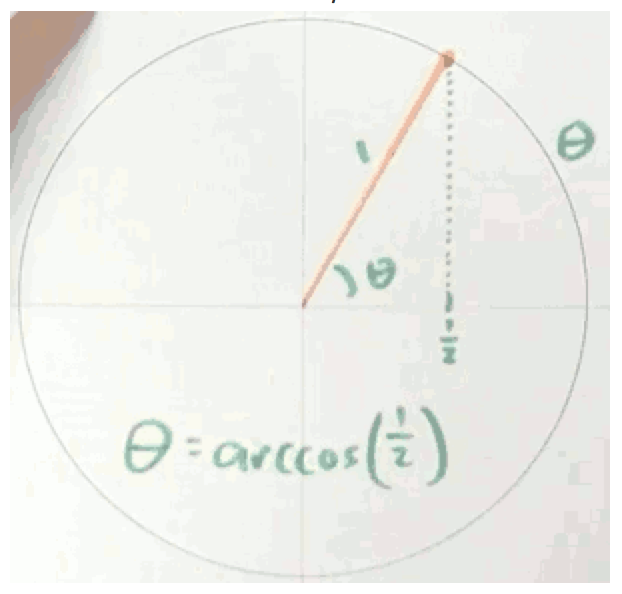 θ
1
θ
1/2
θ = arccos(1/2)